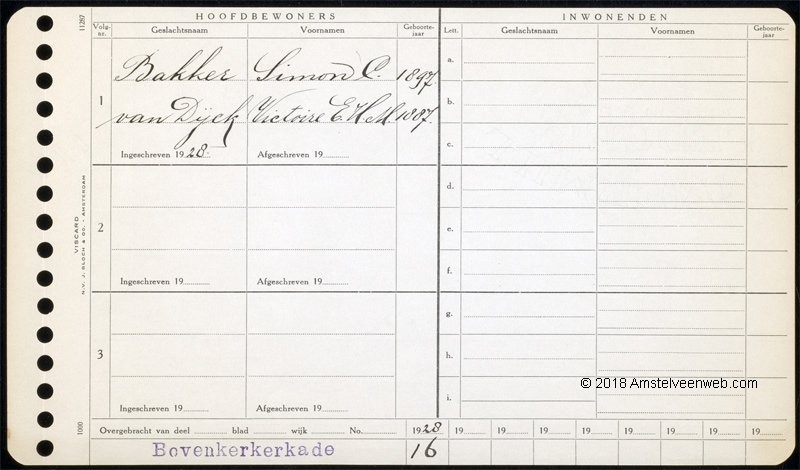 11287
HOOFDBEWONERS
INWONENDEN
Volg-nr.
Geslachtsnaam
Voornamen
Geboorte-jaar
Lett.
Geslachtsnaam
Voornamen
Geboorte-jaar
1
Bakker Simon C. 1897.
van Dijck Victoire E.H.M. 1887.
Ingeschreven 1928.
Afgeschreven 19
2
Ingeschreven 19
Afgeschreven 19
3
Ingeschreven 19
Afgeschreven 19
a.
b.
c.
d.
e.
f.
g.
h.
i.
VISCARD
N.V. J. BLOCH & CO. - AMSTERDAM
1000
© 2018 Amstelveenweb.com
Overgebracht van deel blad wijk No. 1928 19 19 19 19 19 19 19 19
Bovenkerkerkade 16